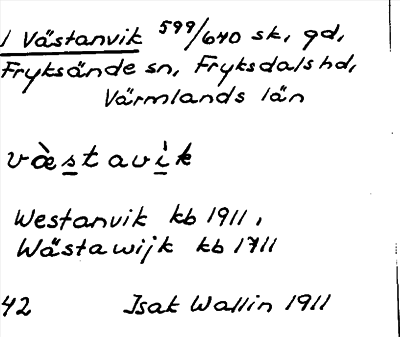 1 Västanvik 599/640 sk, gd,
Fryksände sn, Fryksdals hd,
Värmlands län
væ̀stavìk
Westanvik kb 1911,
Wästawijk kb 1711
42 Isak Wallin 1911